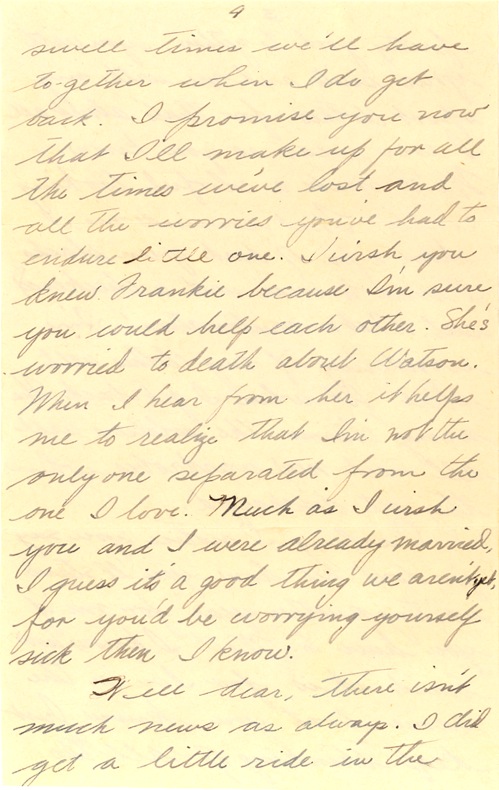 4
swell times we'll have
to-gether when I do get
back. I promise you now
that I'll make up for all
the times we've lost and
all the worries you've had to
endure little one. I wish you
knew Frankie because I'm sure
you would help each other. She's
worried to death about Watson.
When I hear from her it helps
me to realize that I'm not the
only one separated from the
one I love. Much as I wish
you and I were already married,
I guess it's a good thing we aren't yet,
for you'd be worrying yourself
sick then I know.
Well dear, there isn't
much news as always. I did
get a little ride in the